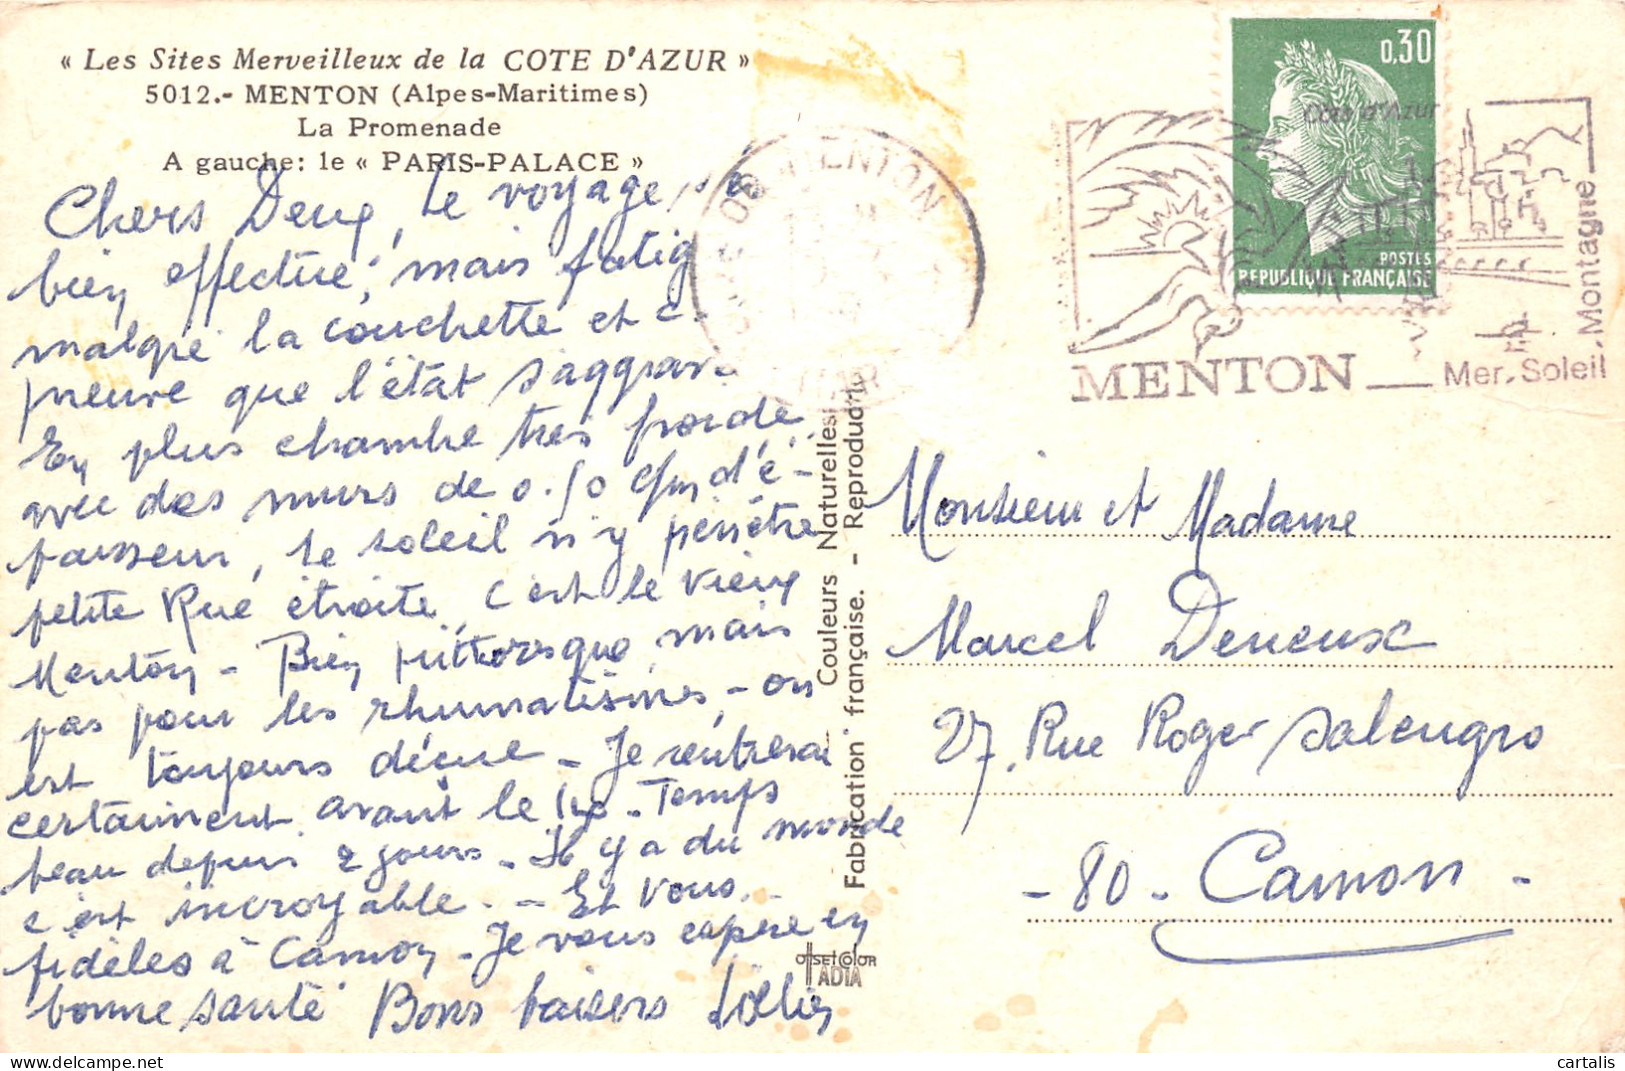 « Les Sites Merveilleux de la COTE D'AZUR »
5012.- MENTON (Alpes-Maritimes)
La Promenade
A gauche: le « PARIS-PALACE »
Chers Deux, le voyage s'é
bien effectué, mais fatig
malgré la couchette et c.
preuve que l'état s'aggrav
En plus chambre très froide
avec des murs de 0.50 d'é-
paisseur, le soleil n'y pénètre
petite Rue étroite, c'est le vieux
Menton - Bien pittoresque, mais
pas pour les rhumatismes, - on
est toujours déçue - Je rentrerai
certainement avant le - Temps
beau depuis 2 jours - Il y a du monde
c'est incroyable. - Et Vous.
fidèles à Camon - Je vous espère en
bonne santé Bons baisers
Couleurs Naturelles
Fabrication française. - Reproduct
OFFSET COLOR
ADIA
MENTON
0,30
POSTES
REPUBLIQUE FRANÇAISE
Côte d'Azur
MENTON
Mer. Soleil
. Montagne
Monsieur et Madame
Marcel Deneux
27, Rue Roger Salengro
- 80 - Camon -
cartalis